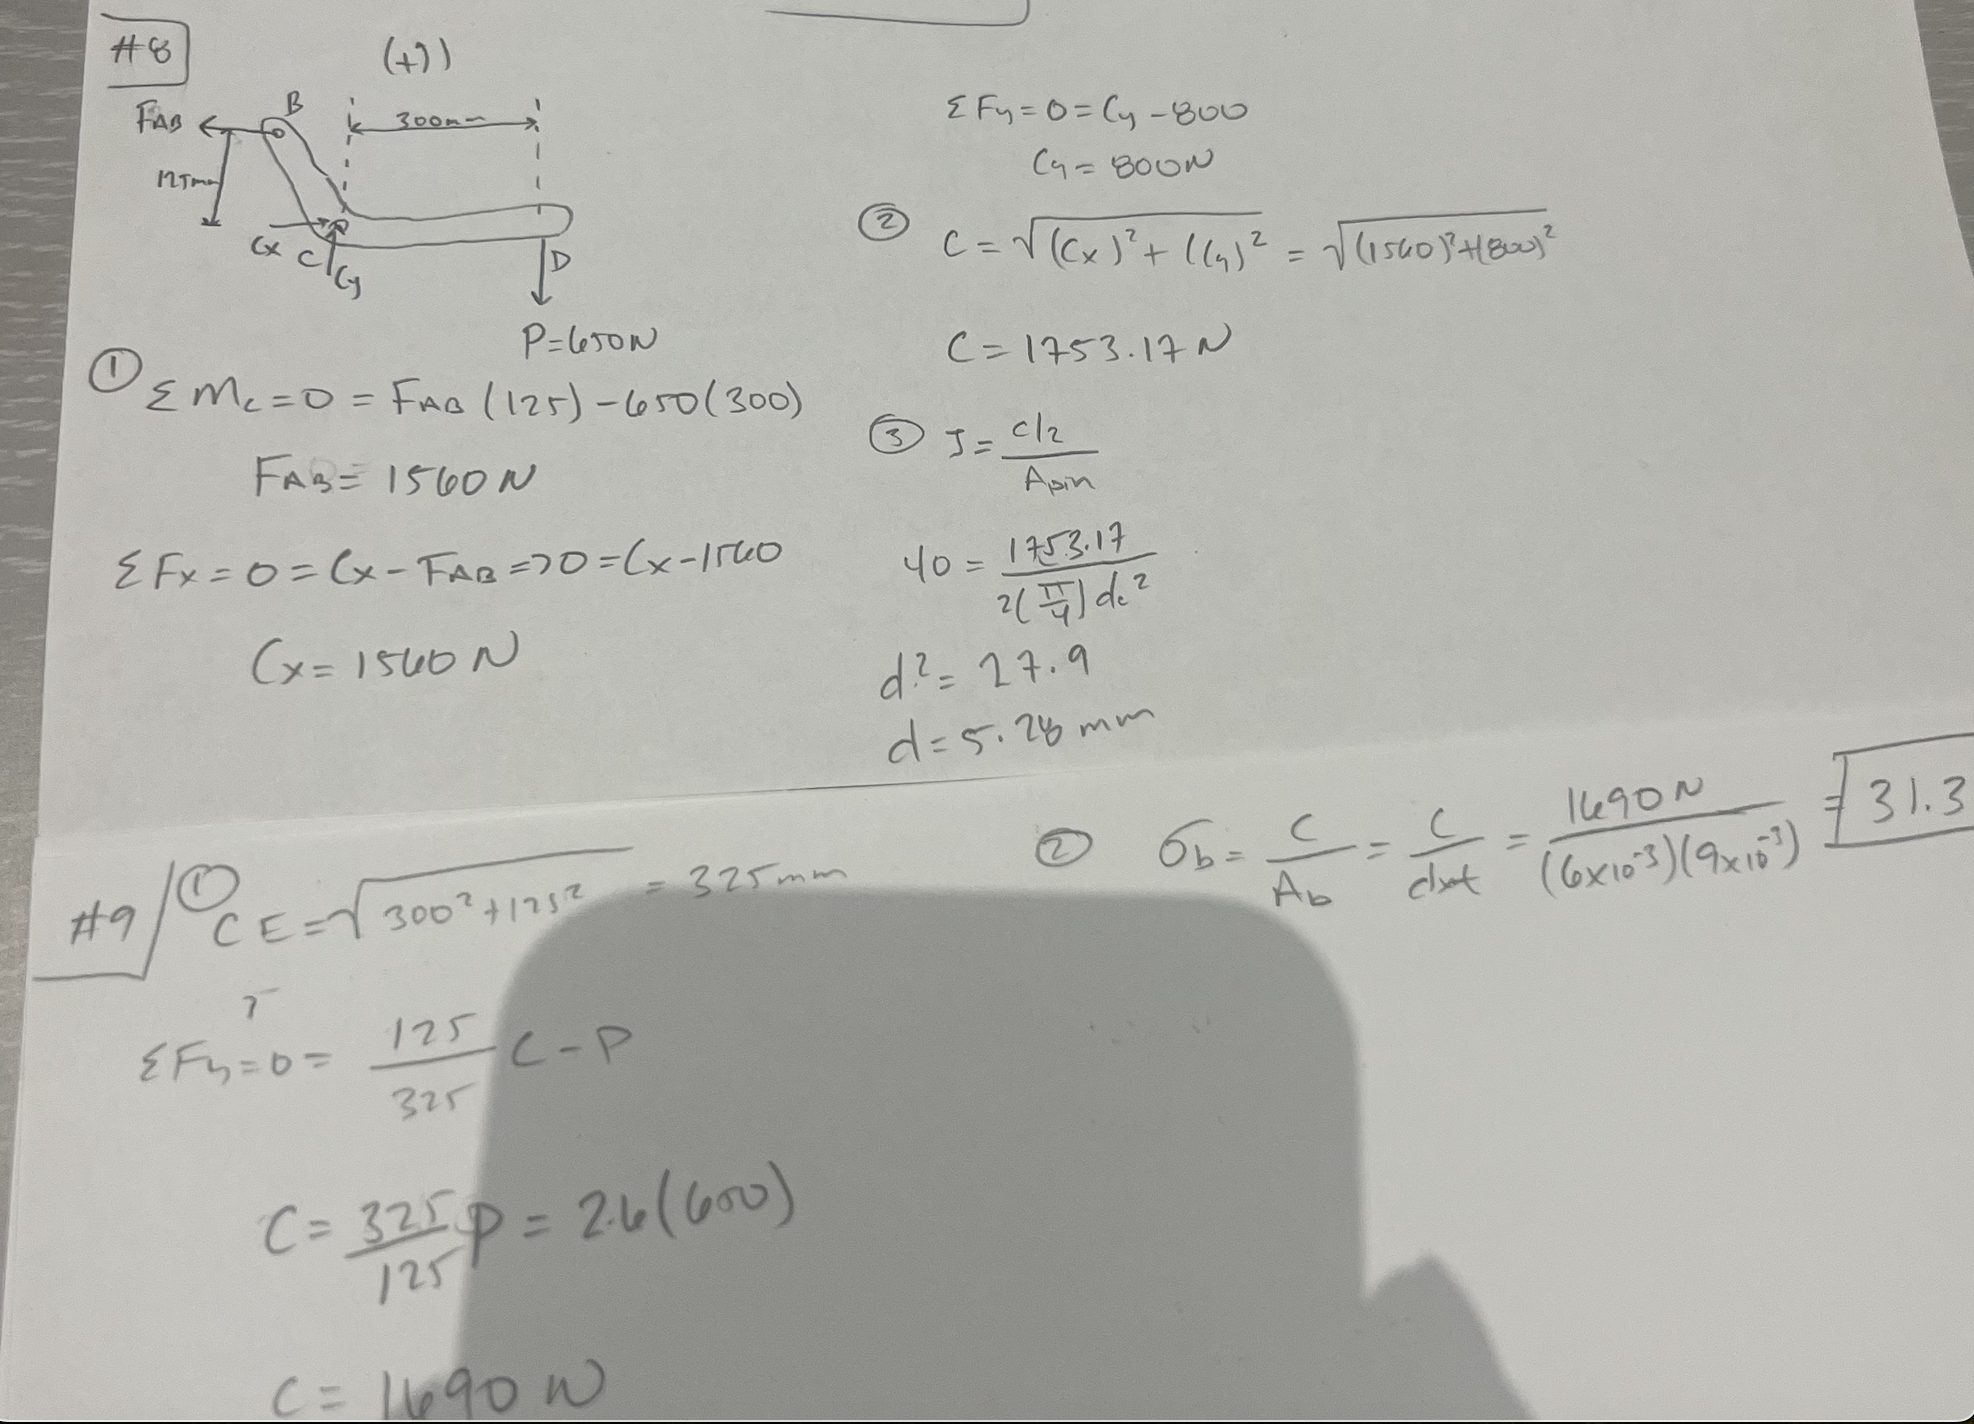 #8
(+↺)
F_AB
B
300mm
125mm
Cx
C
Cy
D
P=650N
① ΣM_C=0 = F_AB (125) - 650(300)
F_AB = 1560 N
ΣFx = 0 = Cx - F_AB => 0 = Cx - 1560
Cx = 1560 N
ΣFy = 0 = Cy - 800
Cy = 800N
② C = √((Cx)²+(Cy)²) = √((1560)²+(800)²)
C = 1753.17 N
③ J = C/2 / Apin
40 = 1753.17 / 2(π/4)dc²
d² = 27.9
d = 5.28 mm
#9
① CE = √(300²+125²) = 325mm
ΣFy = 0 = 125/325 C - P
C = 325/125 P = 2.6(650)
C = 1690 N
② σb = C/Ab = C/dxt = 1690N / (6x10⁻³)(9x10⁻³) = 31.3